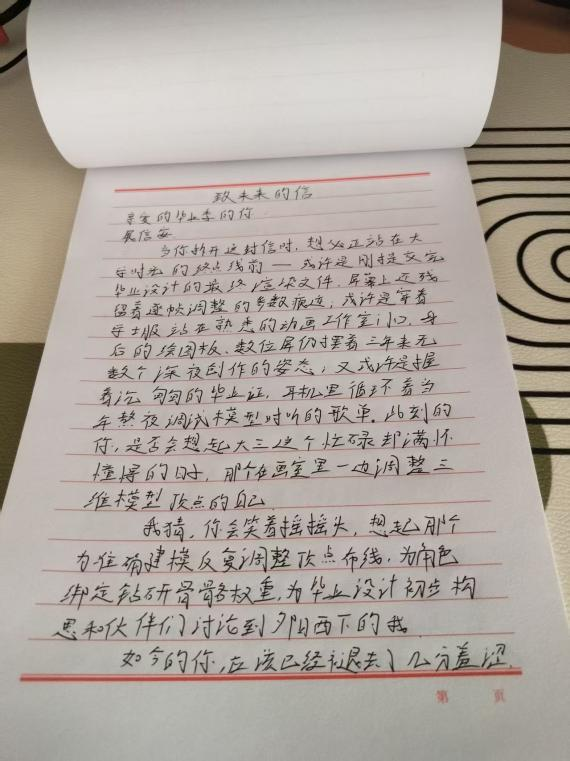 致未来的信
亲爱的毕业季的你
展信安
当你拆开这封信时，想必正站在大
学时光的终点线前——或许是刚提交完
毕业设计的最终渲染文件，屏幕上还残
留着逐帧调整的参数痕迹；或许是穿着
学士服站在熟悉的动画工作室门口，身
后的绘图板、数位屏仍摆着三年来无
数个深夜创作的姿态；又或许是握
着沉甸甸的毕业证，耳机里循环着当
年熬夜调试模型时听的歌单。此刻的
你，是否会想起大三这个忙碌却满怀
憧憬的日子，那个在画室里一边调整三
维模型顶点的自己
我猜，你会笑着摇摇头，想起那个
为准确建模反复调整顶点布线，为角色
绑定钻研骨骼权重，为毕业设计初步构
思和伙伴们讨论到夕阳西下的我。
如今的你，应该已经褪去了几分羞涩，
第 页